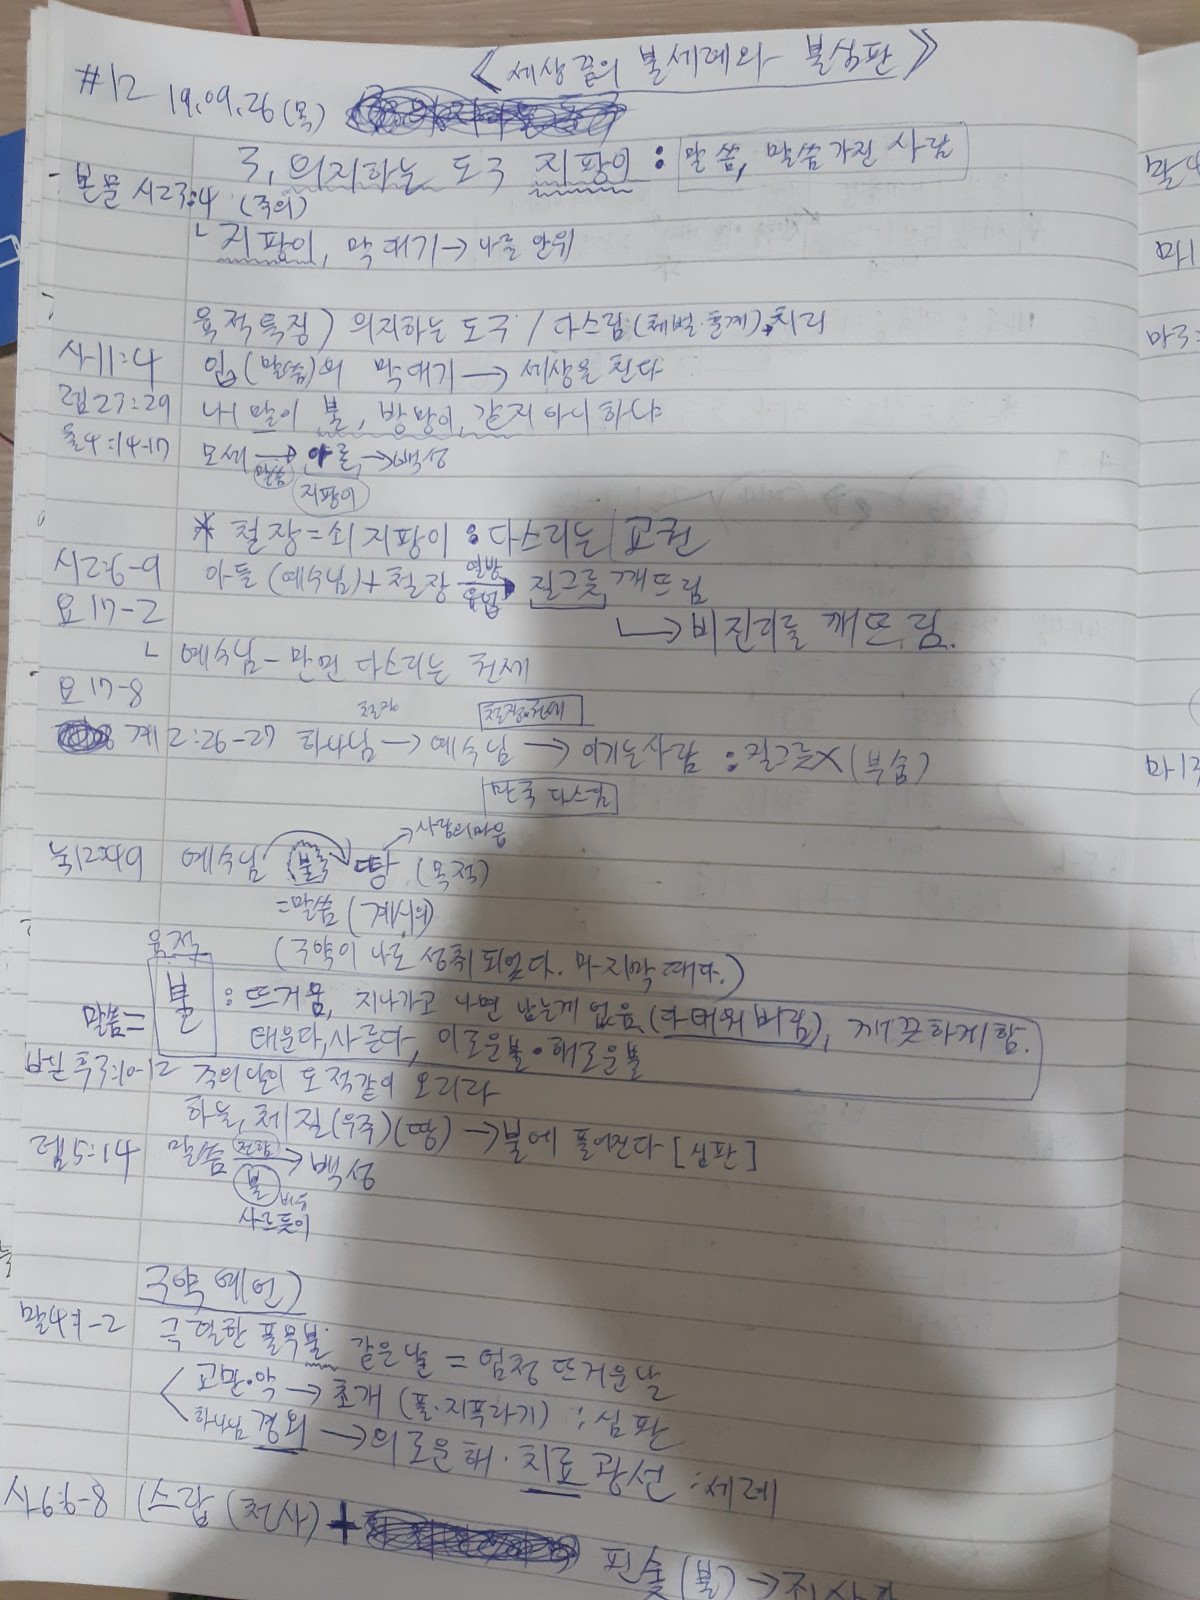 #12 19.09.26(목) <세상 끝의 불세례와 불심판>
3. 의지하는 도구 지팡이 : 말씀, 말씀 가진 사람
본문 시23:4 (주의)
ㄴ 지팡이, 막대기→나를 안위
육적특징) 의지하는 도구 / 다스림(체벌·통계), 치리
사11:4 입(말씀)의 막대기 → 세상을 친다
렘23:29 내 말이 불, 방망이, 같지 아니하냐
출4:14-17 모세 → 아론 → 백성
말씀
지팡이
* 철장=쇠 지팡이 : 다스리는 교권
시2:6-9 아들 (예수님)+철장 → 질그릇 깨뜨림
열방
유업
요17-2 ㄴ→비진리를 깨뜨림.
ㄴ 예수님 - 만민 다스리는 권세
요17-8
철장 철장권세
계2:26-27 하나님 → 예수님 → 이기는사람 : 질그릇X(부숨)
만국 다스림
→사람의마음
눅12:49 예수님 불을 땅 (목적)
=말씀 (계시의)
(구약이 나로 성취 되었다. 마지막 때다.)
육적
말씀= 불 : 뜨거움, 지나가고 나면 남는게 없음(다 태워 버림), 깨끗하게 함.
태운다, 사른다, 이로운불·해로운불
벧후3:10-12 주의 날이 도적같이 오리라
하늘, 체질(우주)(땅)→불에 풀어진다 [심판]
렘5:14 말씀 → 백성
불
사르듯이
구약 예언)
말4:1-2 극렬한 풀무불 같은날 = 엄청 뜨거운 날
교만·악 → 초개 (풀·지푸라기) : 심판
하나님 경외 → 의로운 해·치료 광선 : 세례
사6:6-8 (스랍 (천사) + 핀숯(불) →